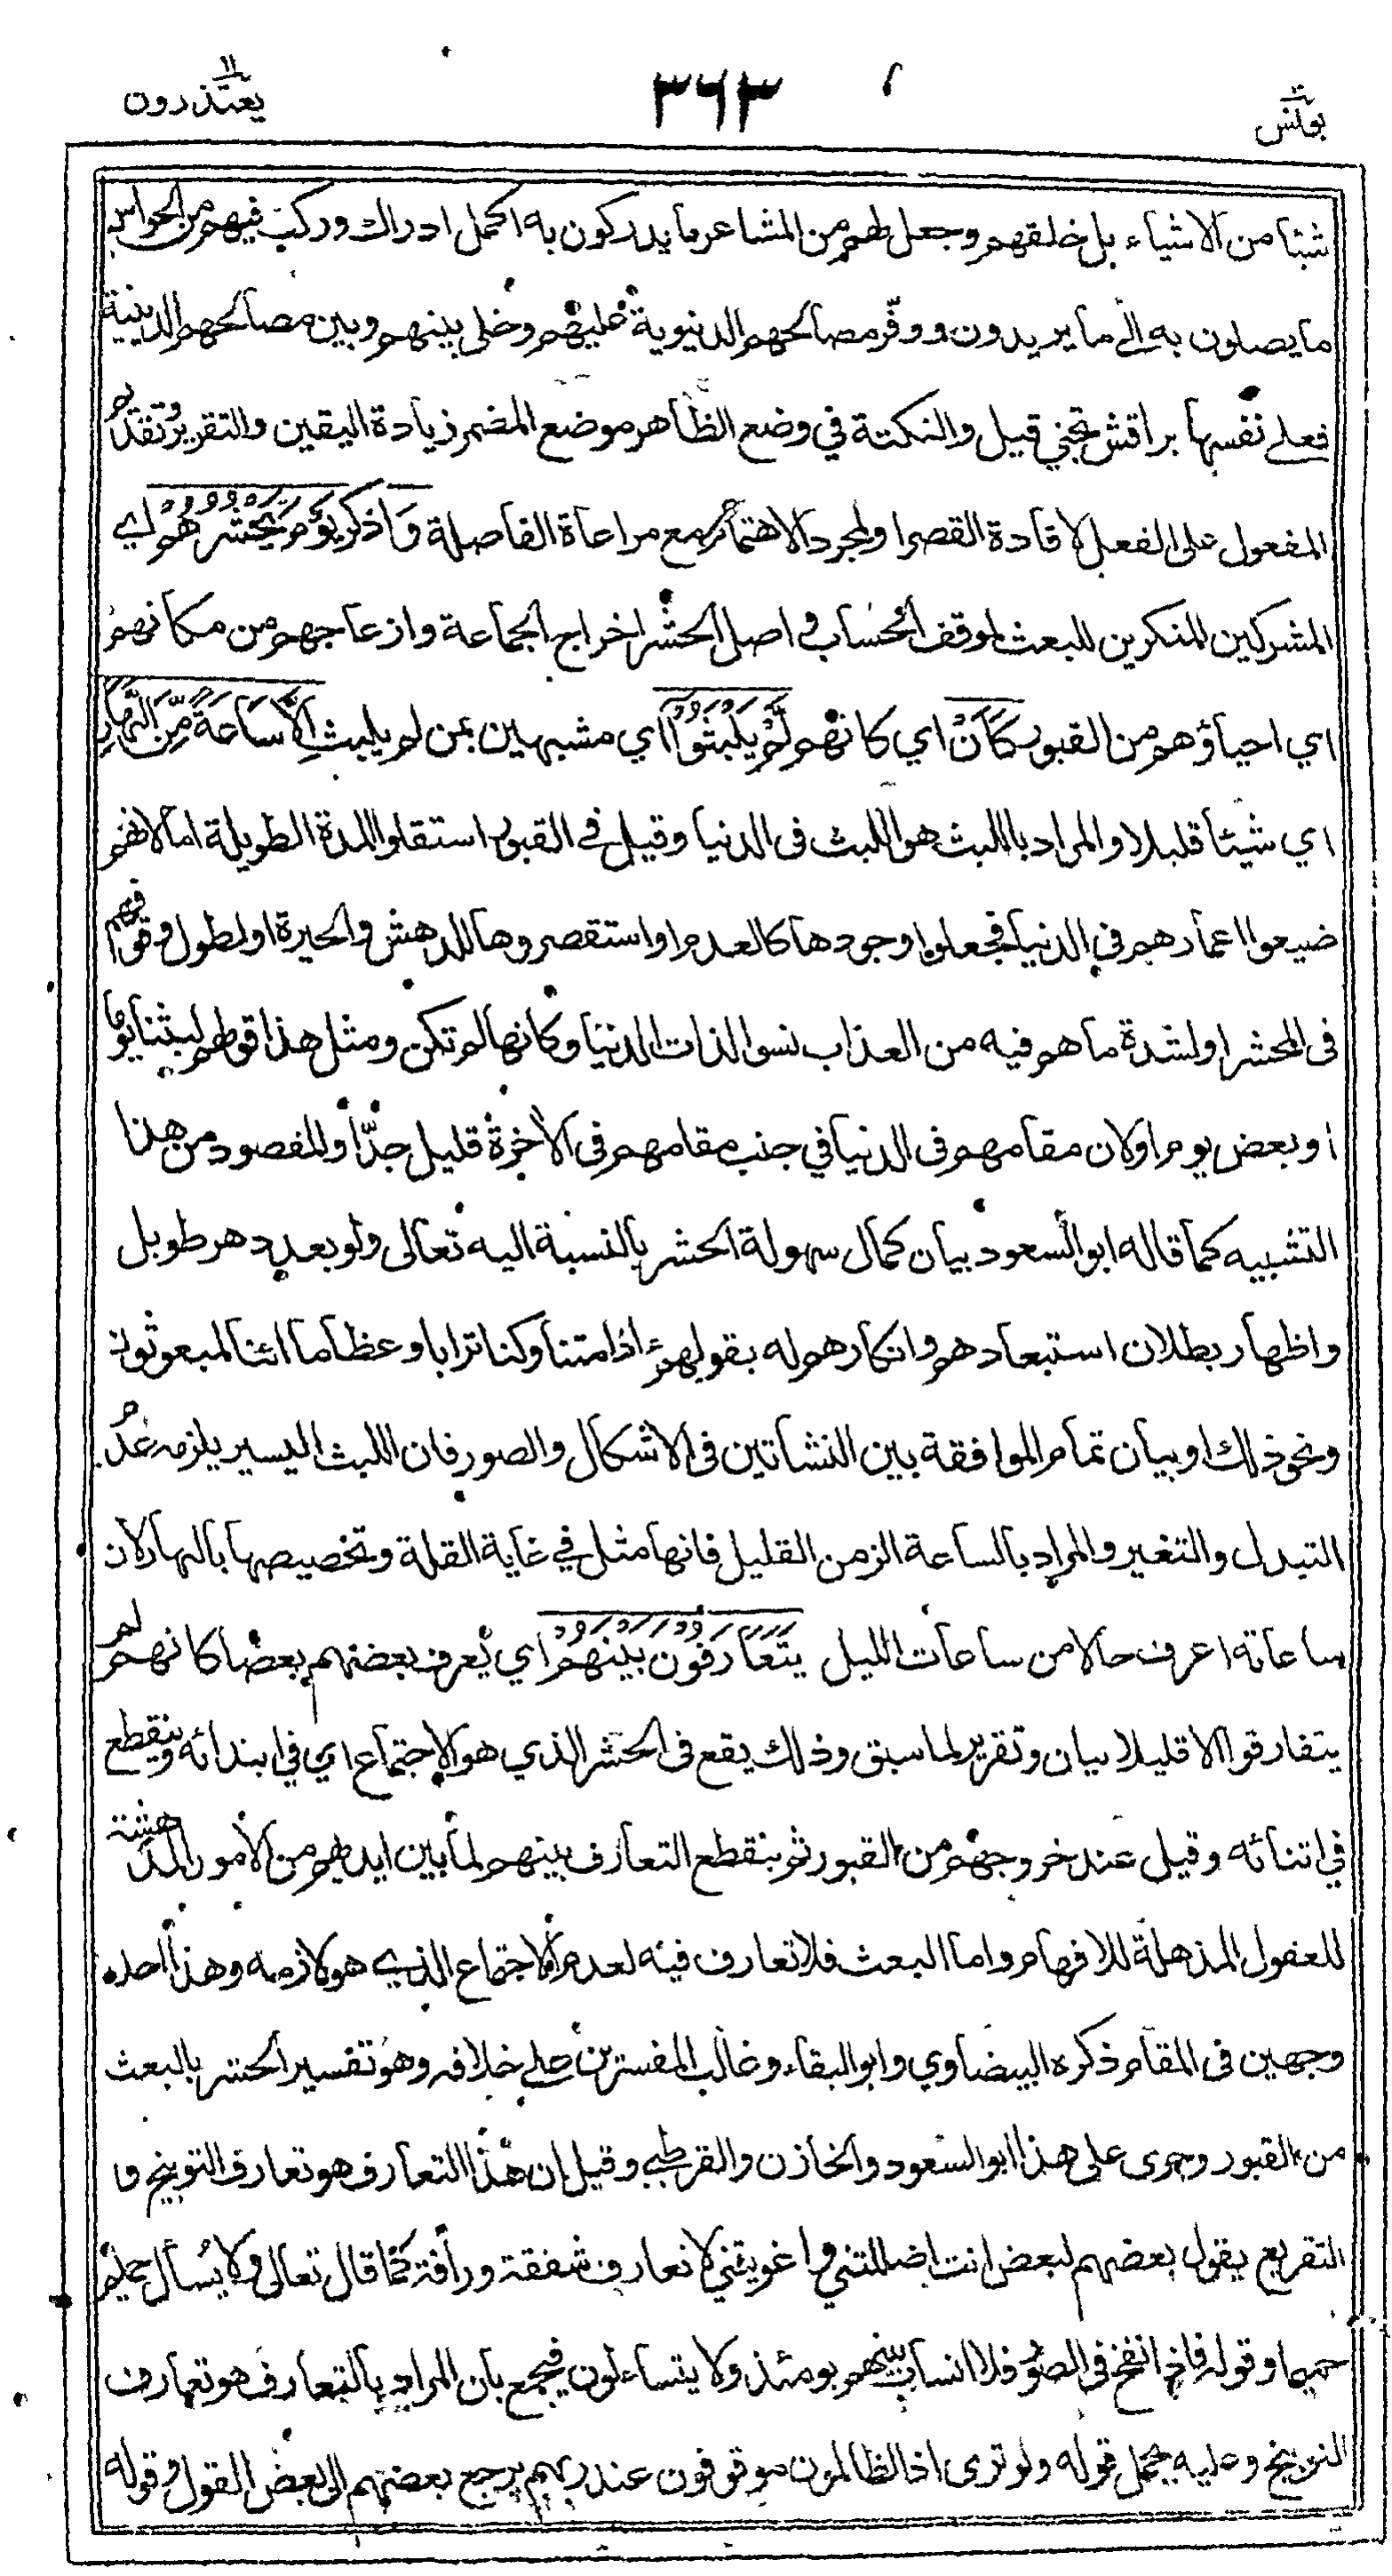 يونس ٣٦٣ يعتذرون ١١
شيئا من الاشياء بل خلقهم وجعل لهم من المشاعر ما يدركون به اكمل ادراك وركب فيهم من الحواس
ما يصلون به الى ما يريدون ووفّر مصالحهم الدنيوية عليهم وخلى بينهم وبين مصالحهم الدينية
فعلى نفسها براقش تجني قيل والنكتة في وضع الظاهر موضع المضمر زيادة اليقين والتقرير وتقديم
المفعول على الفعل لافادة القصر او لمجرد الاهتمام مع مراعاة الفاصلة وَاذكر يَوْمَ يَحْشُرُهُمْ اي
المشركين المنكرين للبعث لموقف الحساب و اصل الحشر اخراج الجماعة وازعاجهم من مكانهم
اي احياؤهم من القبور كَاَنْ اي كانهم لَّمْ يَلْبَثُوْا اي مشبهين بمن لم يلبث اِلَّا سَاعَةً مِّنَ النَّهَارِ
اي شيئا قليلا والمراد باللبث هو اللبث فى الدنيا وقيل في القبور استقلوا المدة الطويلة اما لانهم
ضيعوا اعمارهم في الدنيا فجعلوا وجودها كالعدم او استقصروها للدهش والحيرة او لطول وقوفهم
فى المحشر او لشدة ما هم فيه من العذاب نسوا لذات الدنيا وكانها لم تكن ومثل هذا قولهم لبثنا يوما
او بعض يوم او لان مقامهم فى الدنيا في جنب مقامهم فى الاخرة قليل جدّا والمقصود من هذا
التشبيه كما قاله ابو السعود بيان كمال سهولة الحشر بالنسبة اليه تعالى ولو بعد دهر طويل
واظهار بطلان استبعادهم وانكارهم له بقولهم ءاذا متنا وكنا ترابا وعظاما ائنا لمبعوثون
ونحو ذلك او بيان تمام الموافقة بين النشاتين فى الاشكال والصور فان اللبث اليسير يلزمه عدم
التبدل والتغير والمراد بالساعة الزمن القليل فانها مثل في غاية القلة وتخصيصها بالنهار لان
ساعاته اعرف حالا من ساعات الليل يَتَعَارَفُوْنَ بَيْنَهُمْ اي يعرف بعضهم بعضا كانهم لم
يتفارقوا الا قليلا بيان وتقرير لما سبق وذلك يقع فى الحشر الذي هو الاجتماع اي في ابتدائه وينقطع
في اثنائه وقيل عند خروجهم من القبور ثم ينقطع التعارف بينهم لما بين ايديهم من الامور المدهشة
للعقول المذهلة للافهام واما البعث فلا تعارف فيه لعدم الاجتماع الذي هو لازمه وهذا احد
وجهين فى المقام ذكره البيضاوي وابو البقاء وغالب المفسرين على خلافه وهو تفسير الحشر بالبعث
من القبور وجرى على هذا ابو السعود والخازن والقرطبي وقيل ان هذا التعارف هو تعارف التوبيخ و
التقريع يقول بعضهم لبعض انت اضللتني واغويتني لا تعارف شفقة ورأفة كما قال تعالى ولا يسأل حميم
حميما وقوله فاذا نفخ فى الصور فلا انساب بينهم يومئذ ولا يتساءلون فيجمع بان المراد بالتعارف هو تعارف
التوبيخ وعليه يحمل قوله ولو ترى اذ الظالمون موقوفون عند ربهم يرجع بعضهم الى بعض القول وقوله